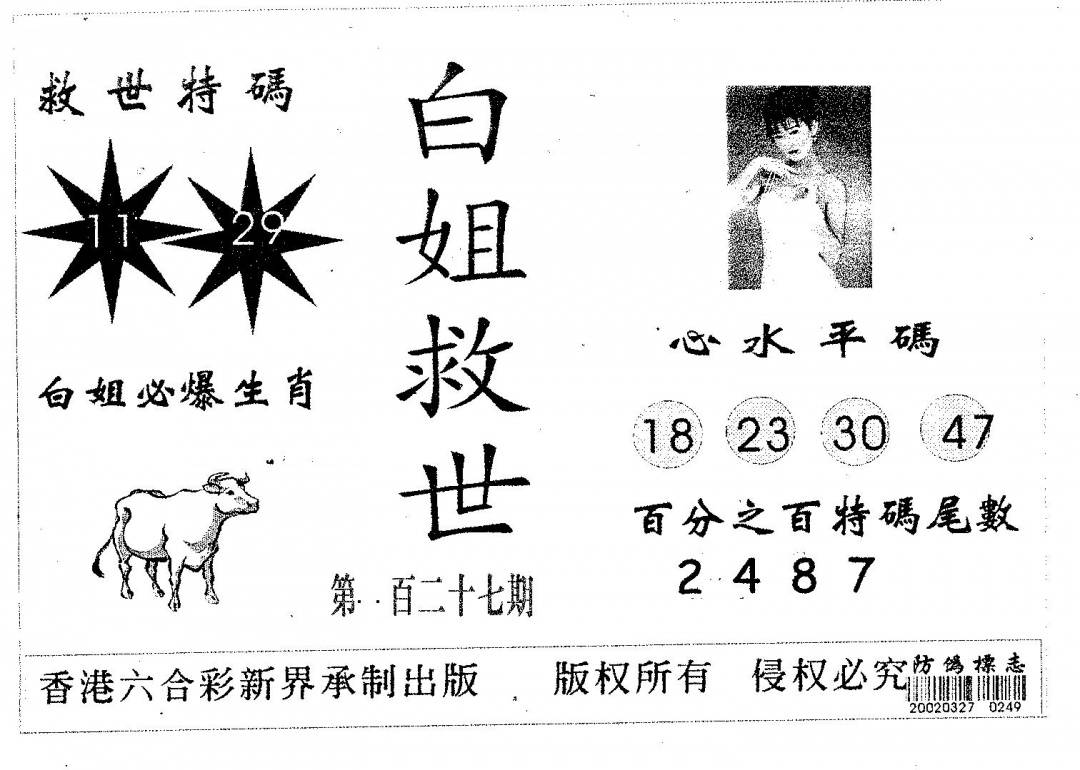 救世特碼
11 29
白姐必爆生肖
白姐救世
第一百二十七期
心水平碼
18 23 30 47
百分之百特碼尾數
2 4 8 7
香港六合彩新界承制出版 版权所有 侵权必究
防偽標志
20020327 0249